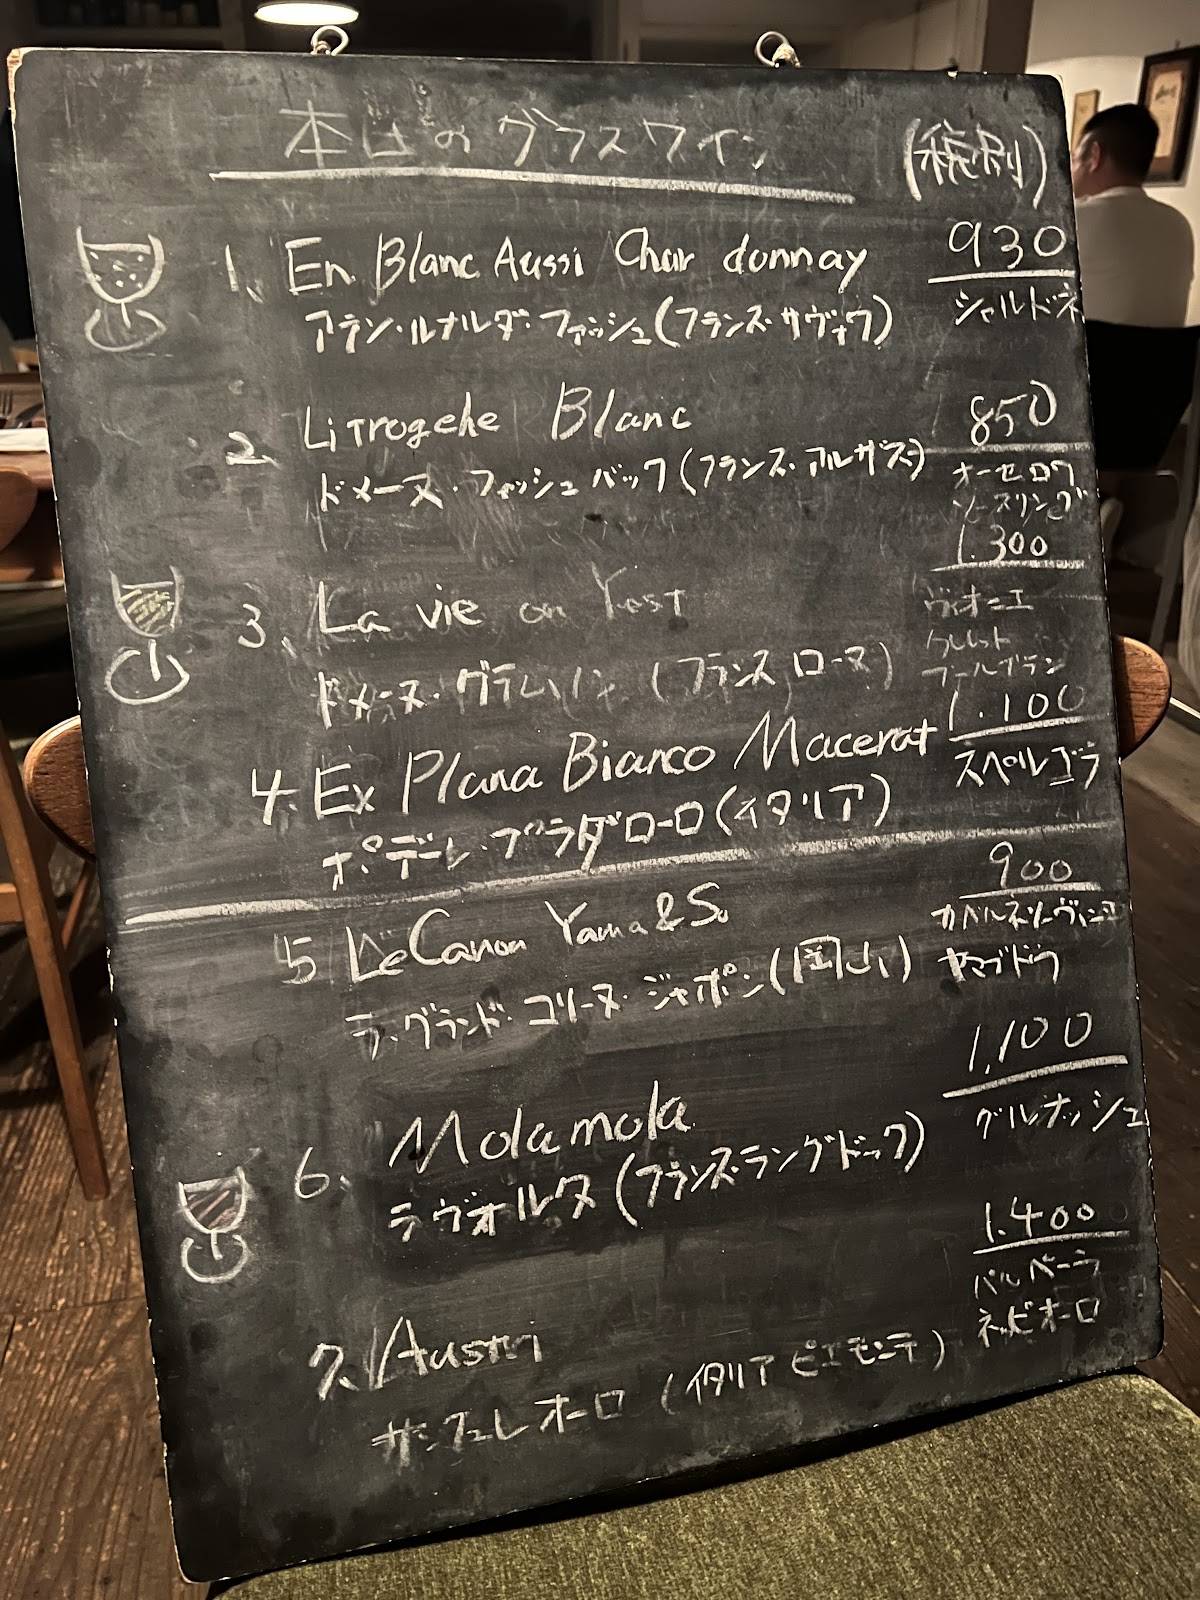 本日のグラスワイン (税別)
1、 En Blanc Aussi Chardonnay 930
アラン・ルナルダ・ファッシュ(フランス・サヴォワ) シャルドネ
2、 Litrogehe Blanc 850
ドメーヌ・フォッシュバック(フランス・アルザス) オーセロワ
リースリング
3、 La vie on Yest 1.300
ヴィオニエ
クレレット
ブールブラン
ドメーヌ・グラムノン (フランス ローヌ)
4、 Ex Plana Bianco Macerat 1.100
ポデーレ・プラダローロ(イタリア) スペルゴラ
5 Le Canon Yama & So 900
ラ・グランド・コリーヌ・ジャポン(岡山) カベルネソーヴィニヨン
ヤマブドウ
6、 Molamola 1,100
ラ ヴォルタ(フランス・ラングドック) グルナッシュ
7、 Austri 1.400
サンフェレオーロ (イタリア ピエモンテ) バルベーラ
ネッビオーロ